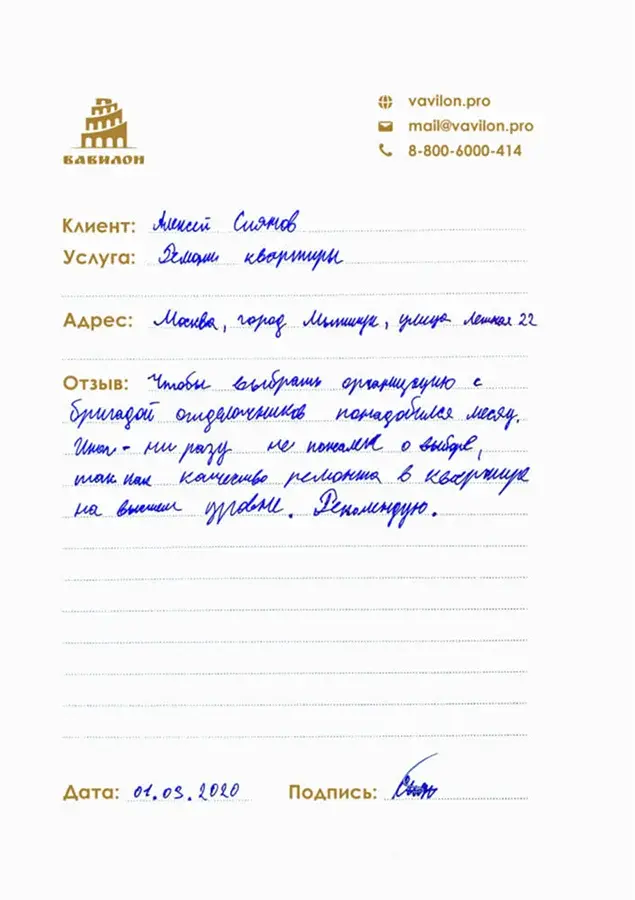 ВАВИЛОН
vavilon.pro
mail@vavilon.pro
8-800-6000-414
Клиент: Алексей Сиянов
Услуга: Ремонт квартиры
Адрес: Москва, город Мытищи, улица Летная 22
Отзыв: Чтобы выбрать организацию с
бригадой отделочников понадобился месяц.
Итог - ни разу не пожалел о выборе,
так как качество ремонта в квартире
на высшем уровне. Рекомендую.
Дата: 01.03.2020 Подпись: